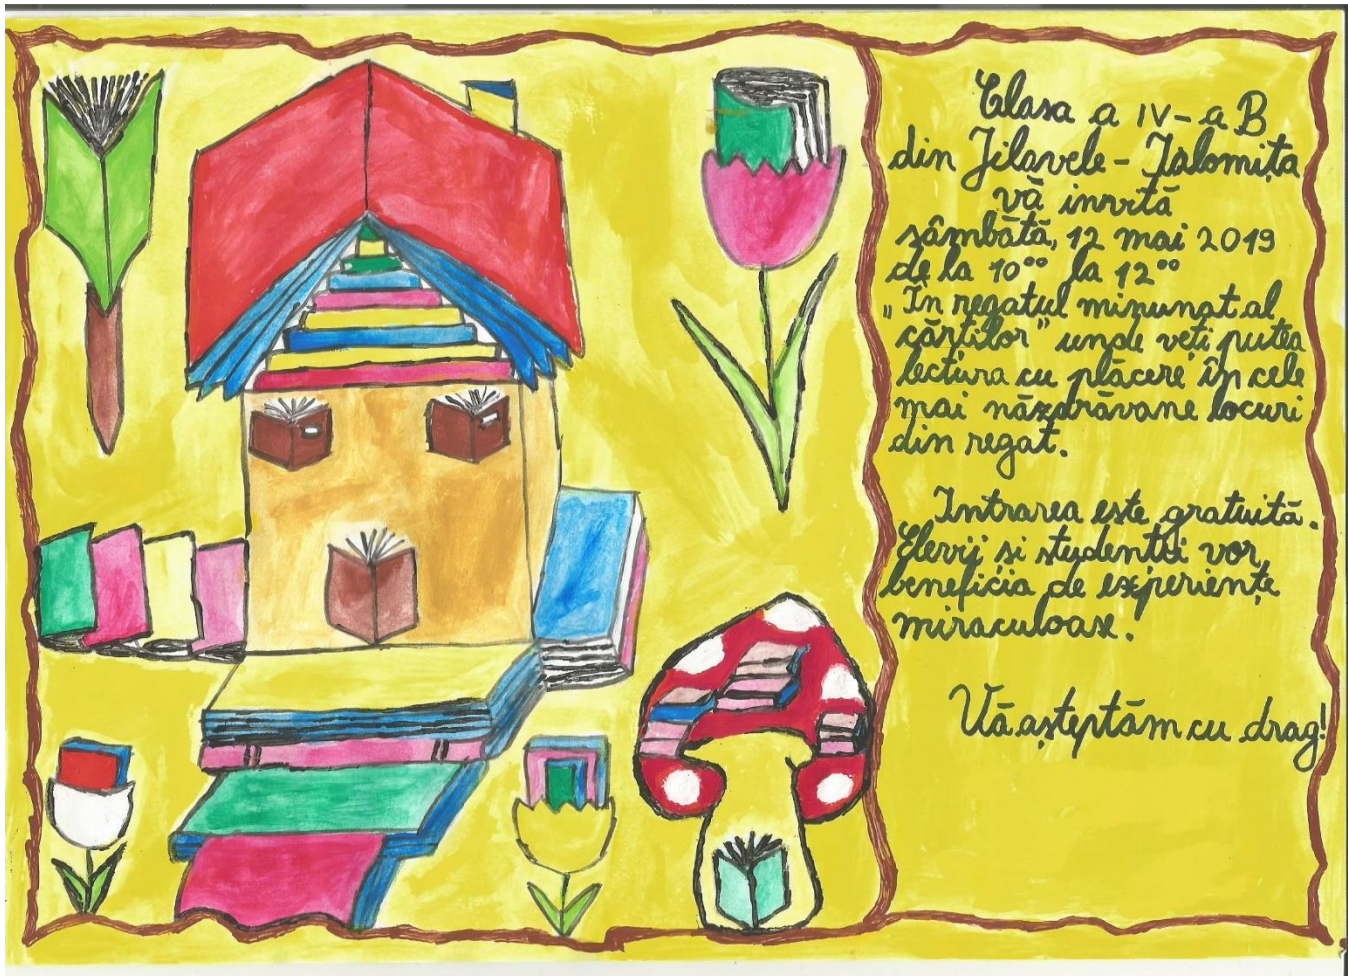 Clasa a IV-a B
din Jilavele - Ialomița
vă invită
sâmbătă, 12 mai 2019
de la 10⁰⁰ la 12⁰⁰
„În regatul minunat al
cărților” unde veți putea
lectura cu plăcere în cele
mai năzdrăvane locuri
din regat.
Intrarea este gratuită.
Elevii și studenții vor
beneficia de experiențe
miraculoase.
Vă așteptăm cu drag!